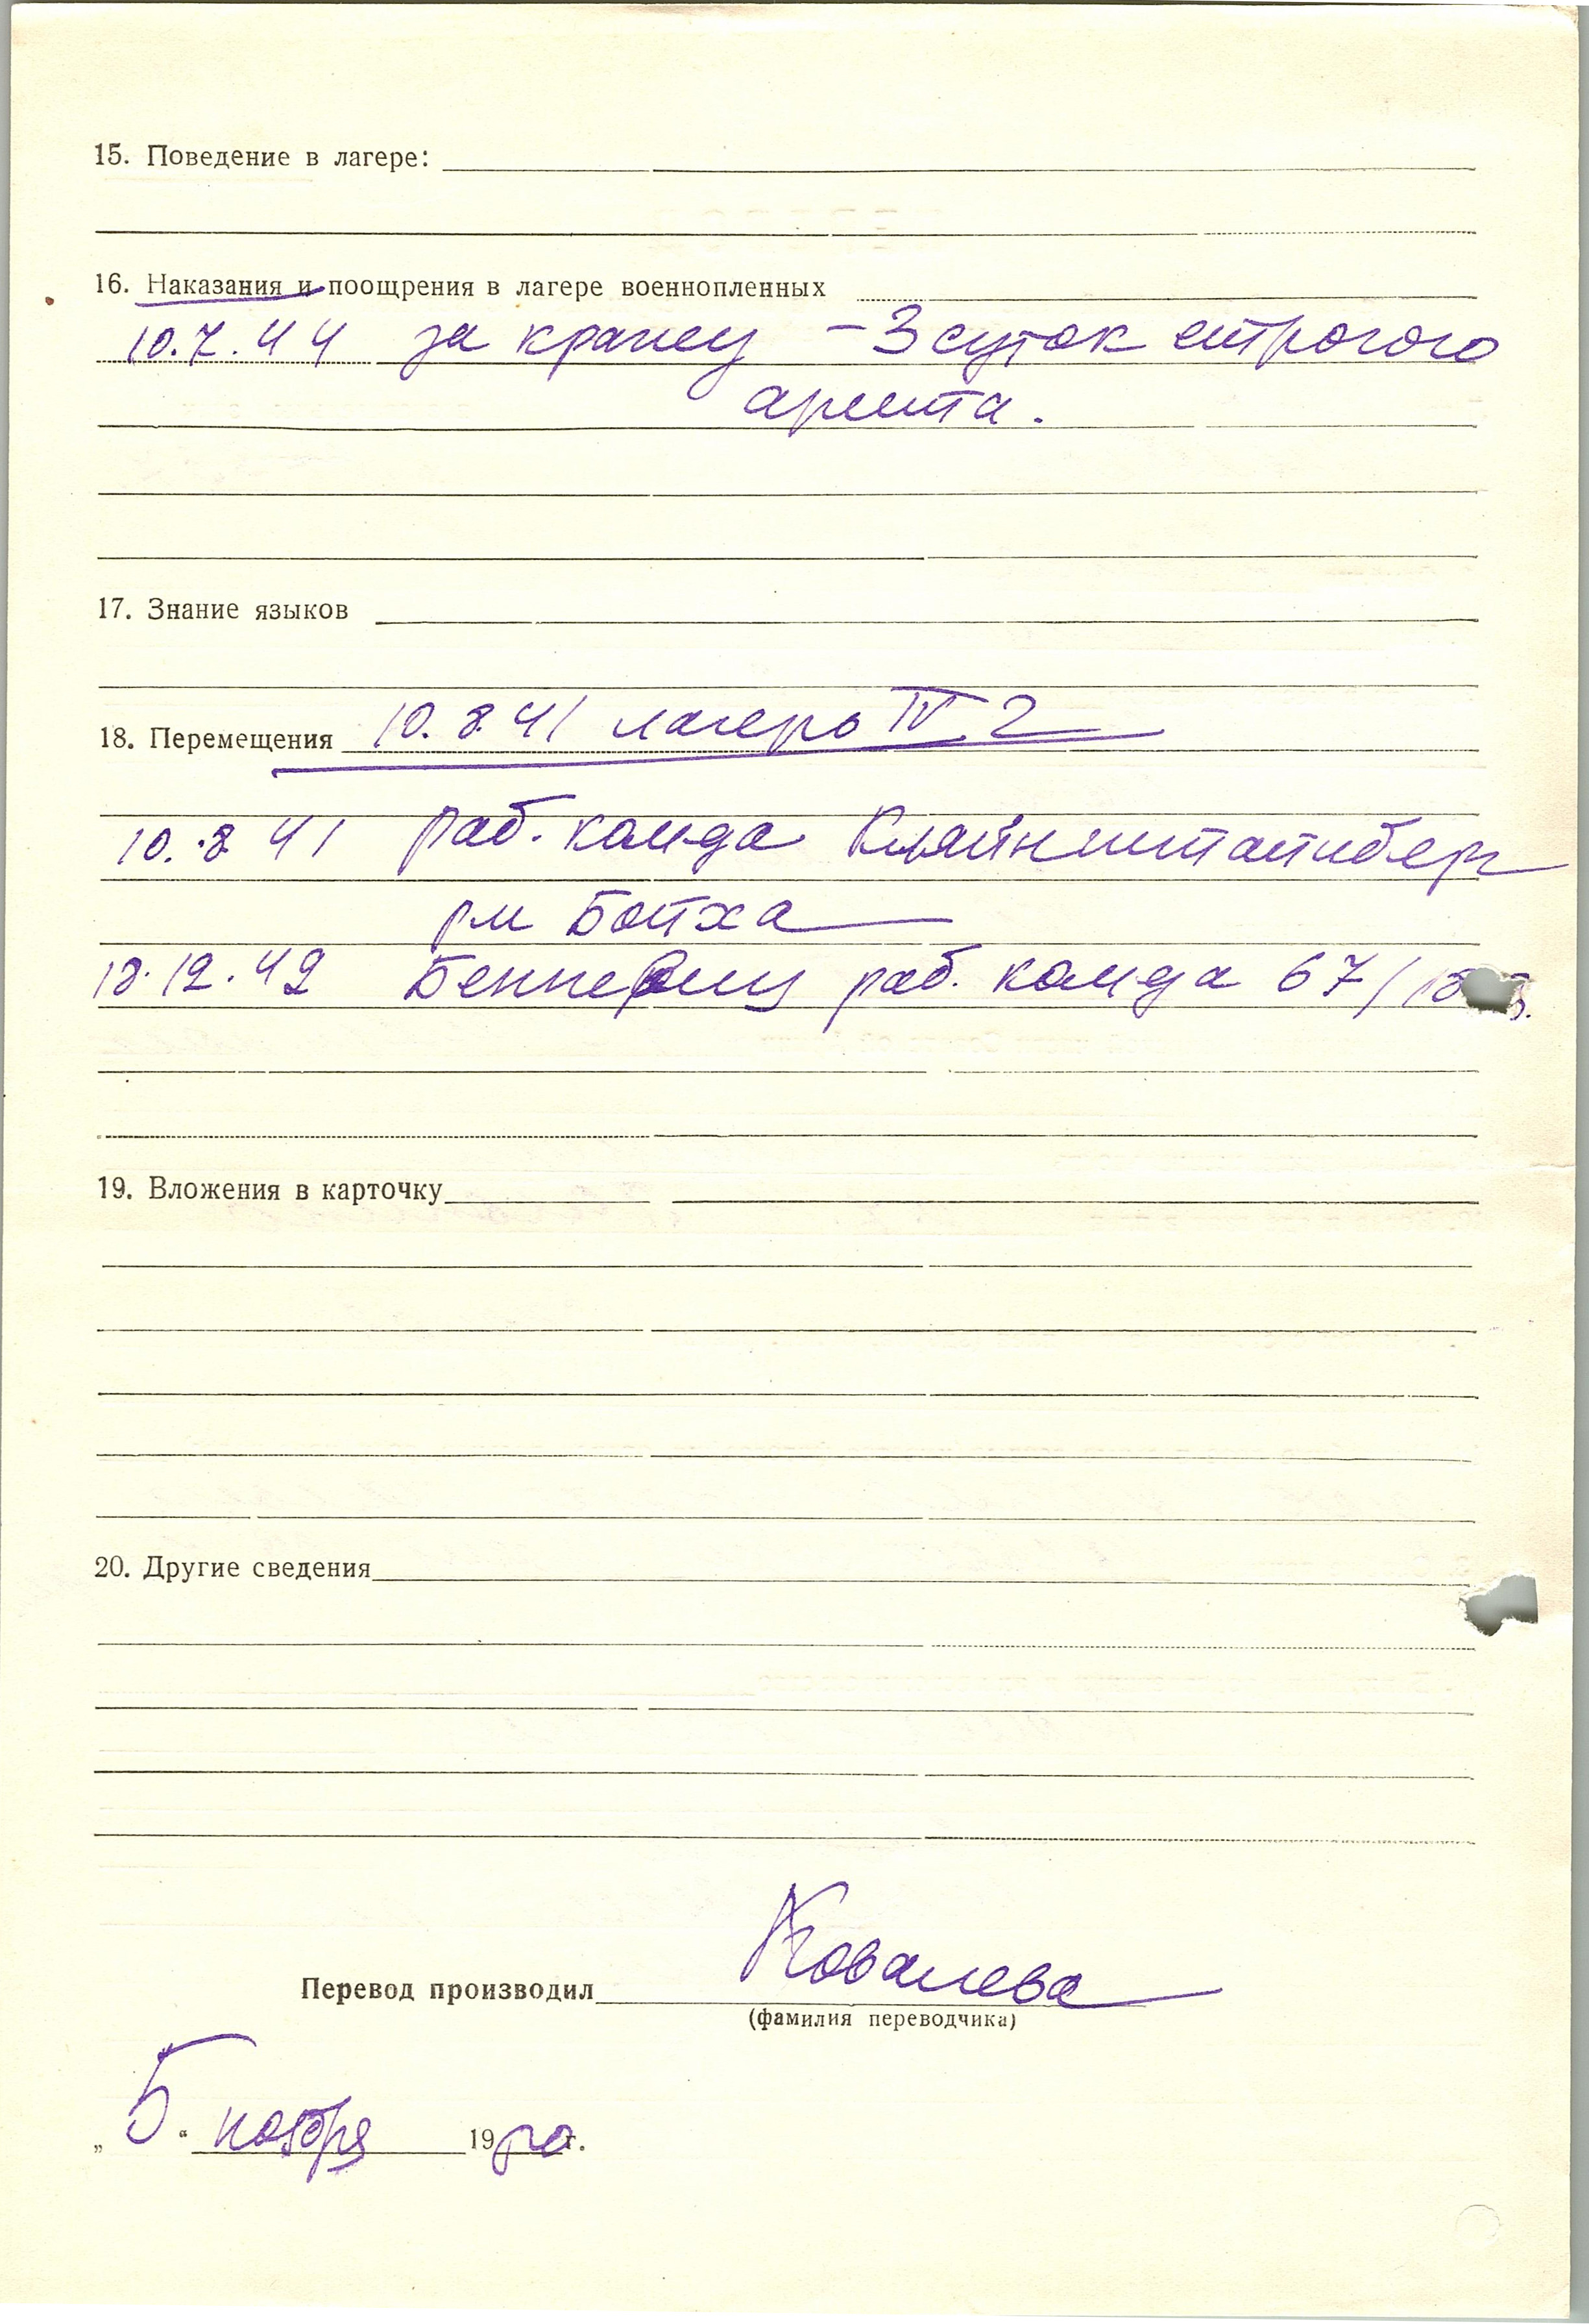 15. Поведение в лагере:
16. Наказания и поощрения в лагере военнопленных
10.7.44 за кражу – 3 суток строгого
ареста.
17. Знание языков
18. Перемещения 10.8.41 лагерь IV 2
10.8 41 раб. кам-да Кляйнштайнберг
р-н Бойха
18.12.42 раб. кам-да 67/
19. Вложения в карточку
20. Другие сведения
Перевод производил Ковалева
(фамилия переводчика)
„5“ ноября 19 г.